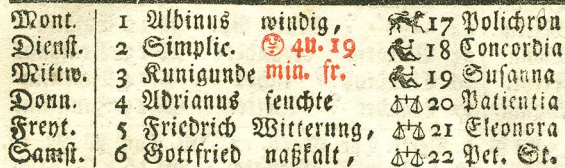 Mont. 1 Albinus windig, 17 Polichron
Dienst. 2 Simplic. 4 u. 19 18 Concordia
Mittw. 3 Kunigunde min. fr. 19 Susanna
Donn. 4 Adrianus feuchte 20 Patientia
Freyt. 5 Friedrich Witterung, 21 Eleonora
Samst. 6 Gottfried naßkalt, 22 Pet. St.